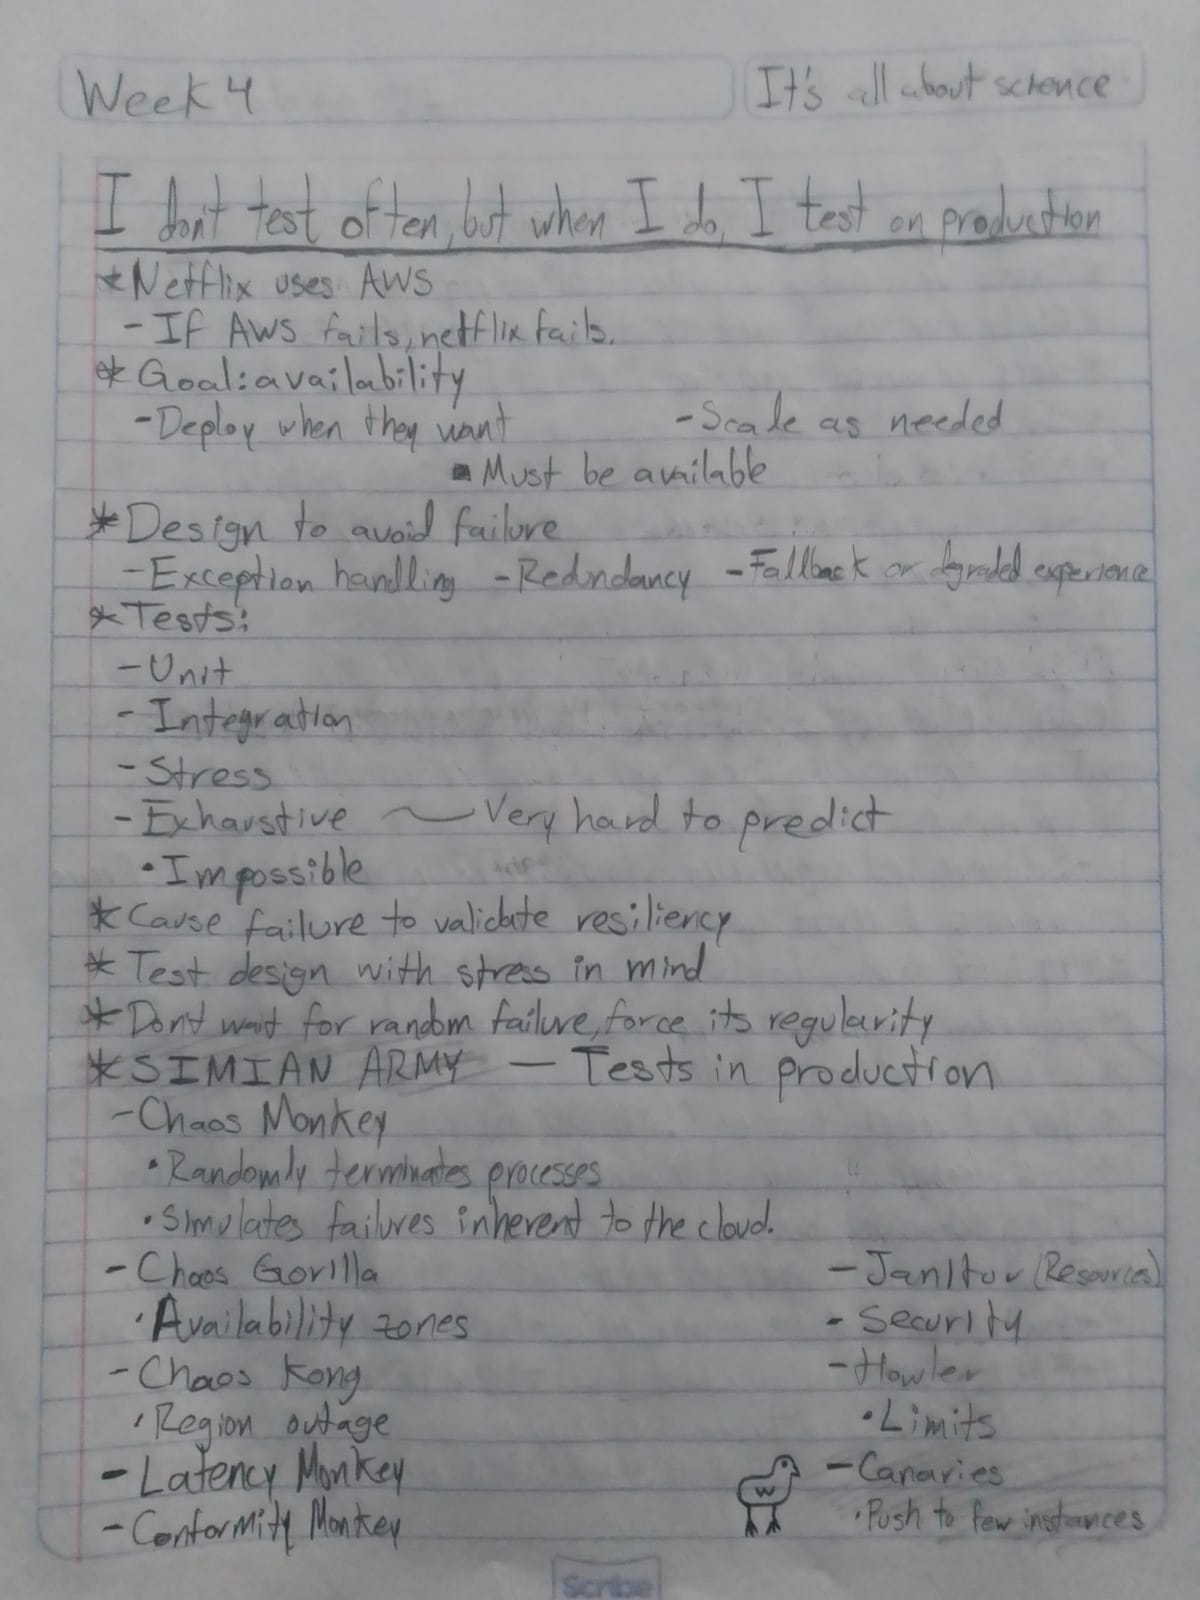 Week 4
It's all about science
I don't test often, but when I do, I test on production
*Netflix uses AWS
-If AWS fails, netflix fails.
* Goal: availability
-Deploy when they want -Scale as needed
▪ Must be available
*Design to avoid failure
-Exception handling -Redundancy -Fallback or degraded experience
*Tests:
-Unit
-Integration
-Stress
-Exhaustive ~ Very hard to predict
•Impossible
*Cause failure to validate resiliency
*Test design with stress in mind
*Dont wait for random failure, force its regularity
*SIMIAN ARMY — Tests in production
-Chaos Monkey
•Randomly terminates processes
•Simulates failures inherent to the cloud.
-Chaos Gorilla
•Availability zones
-Chaos Kong
•Region outage
-Latency Monkey
-Conformity Monkey
-Janitor (Resources)
-Security
-Howler
•Limits
-Canaries
•Push to few instances
W
Scribe